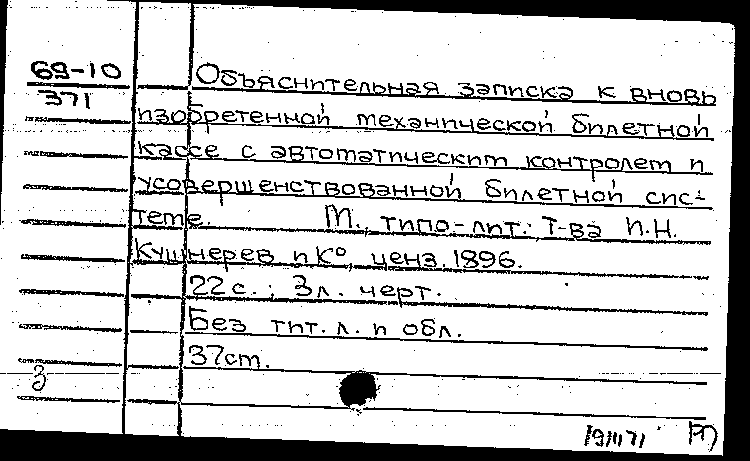 69-10
371
Объяснительная записка к вновь
изобретенной механической билетной
кассе с автоматическим контролем и
усовершенствованной билетной сис-
теме. М., типо-лит. Т-ва И.Н.
Кушнерев и К°, ценз. 1896.
22 с.; 3 л. черт.
Без тит. л. и обл.
37 см.
3